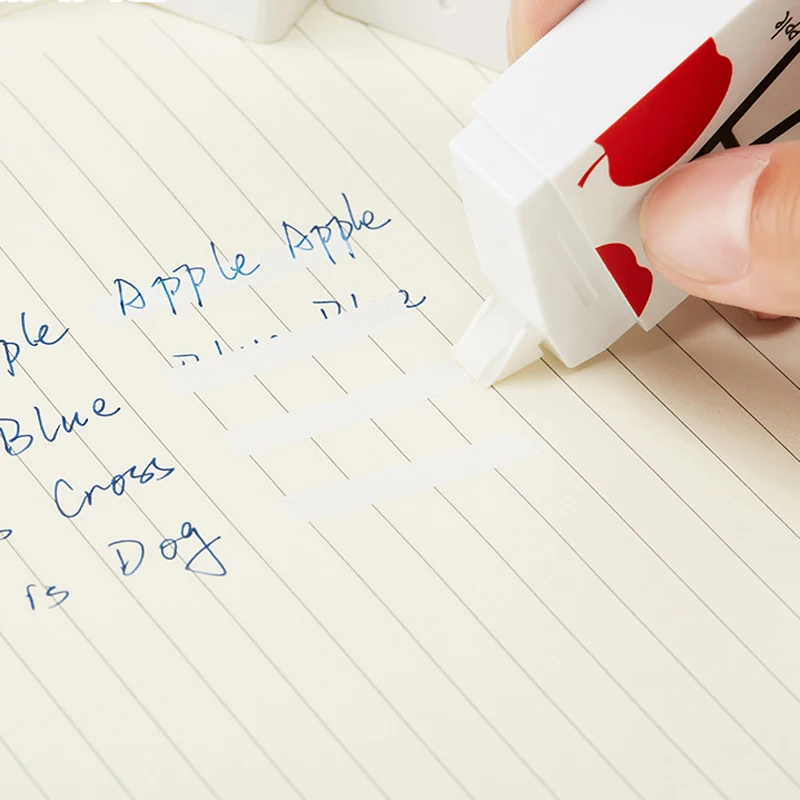 ple Apple Apple
Blue
Cross
is Dog